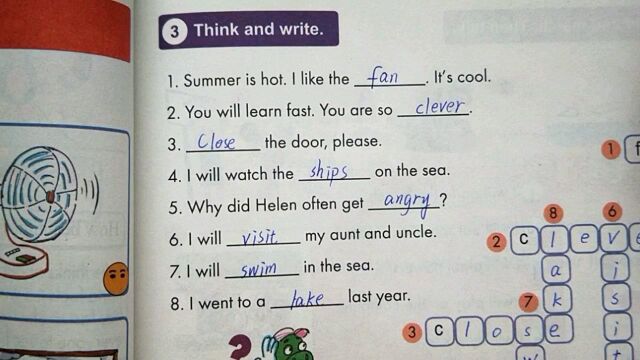 3 Think and write.
1. Summer is hot. I like the fan. It's cool.
2. You will learn fast. You are so clever.
3. Close the door, please.
4. I will watch the ships on the sea.
5. Why did Helen often get angry?
6. I will visit my aunt and uncle.
7. I will swim in the sea.
8. I went to a lake last year.
1 f
8 6
2 c l e v e
a i
7 k s
3 c l o s e i
w t
?